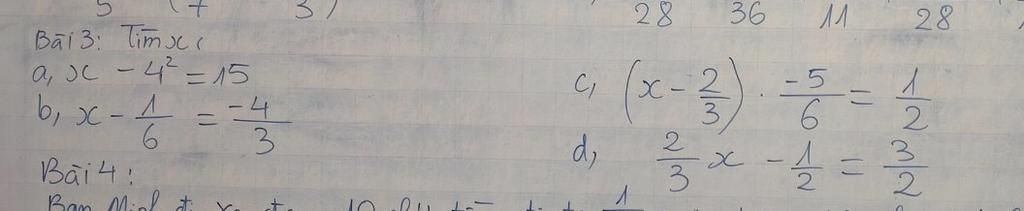 5 (7 3)
28 36 11 28
Bài 3: Tìm x:
a, x - 4² = 15
b, x - 1/6 = -4/3
c, (x - 2/3) . -5/6 = 1/2
d, 2/3 x - 1/2 = 3/2
Bài 4: